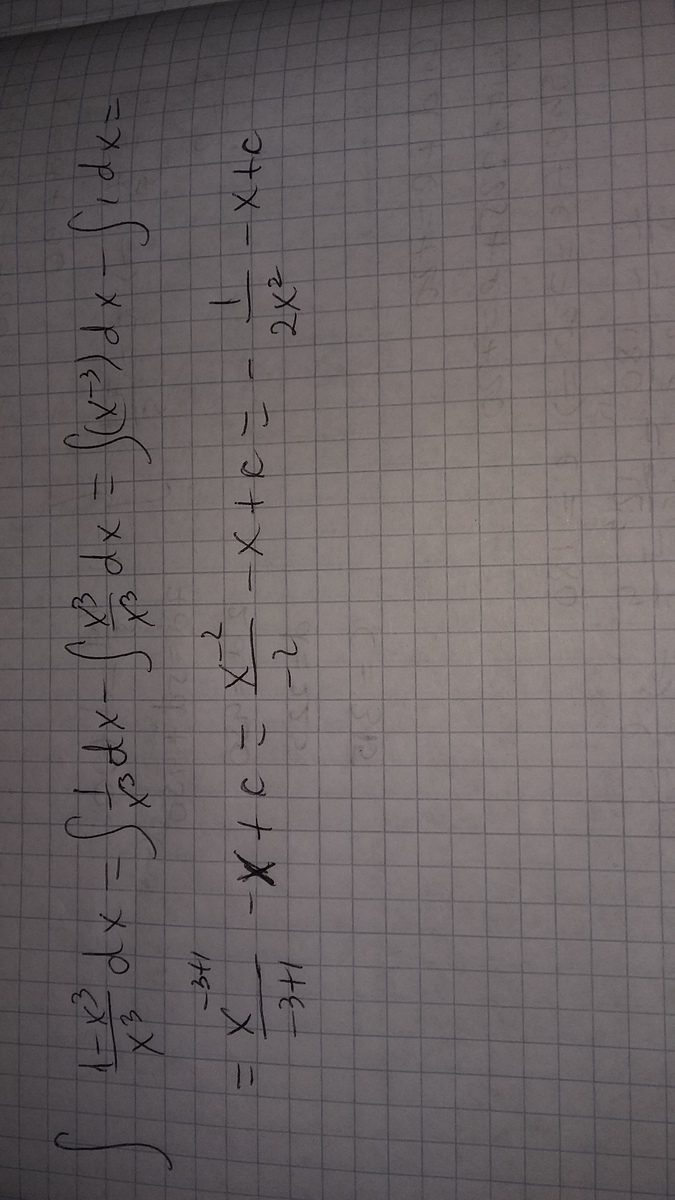 ∫ (1-x³)/x³ dx = ∫ 1/x³ dx - ∫ x³/x³ dx = ∫(x⁻³)dx - ∫1dx =
= x⁻³⁺¹/(-3+1) - x + c = x⁻²/(-2) - x + c = - 1/(2x²) - x + c